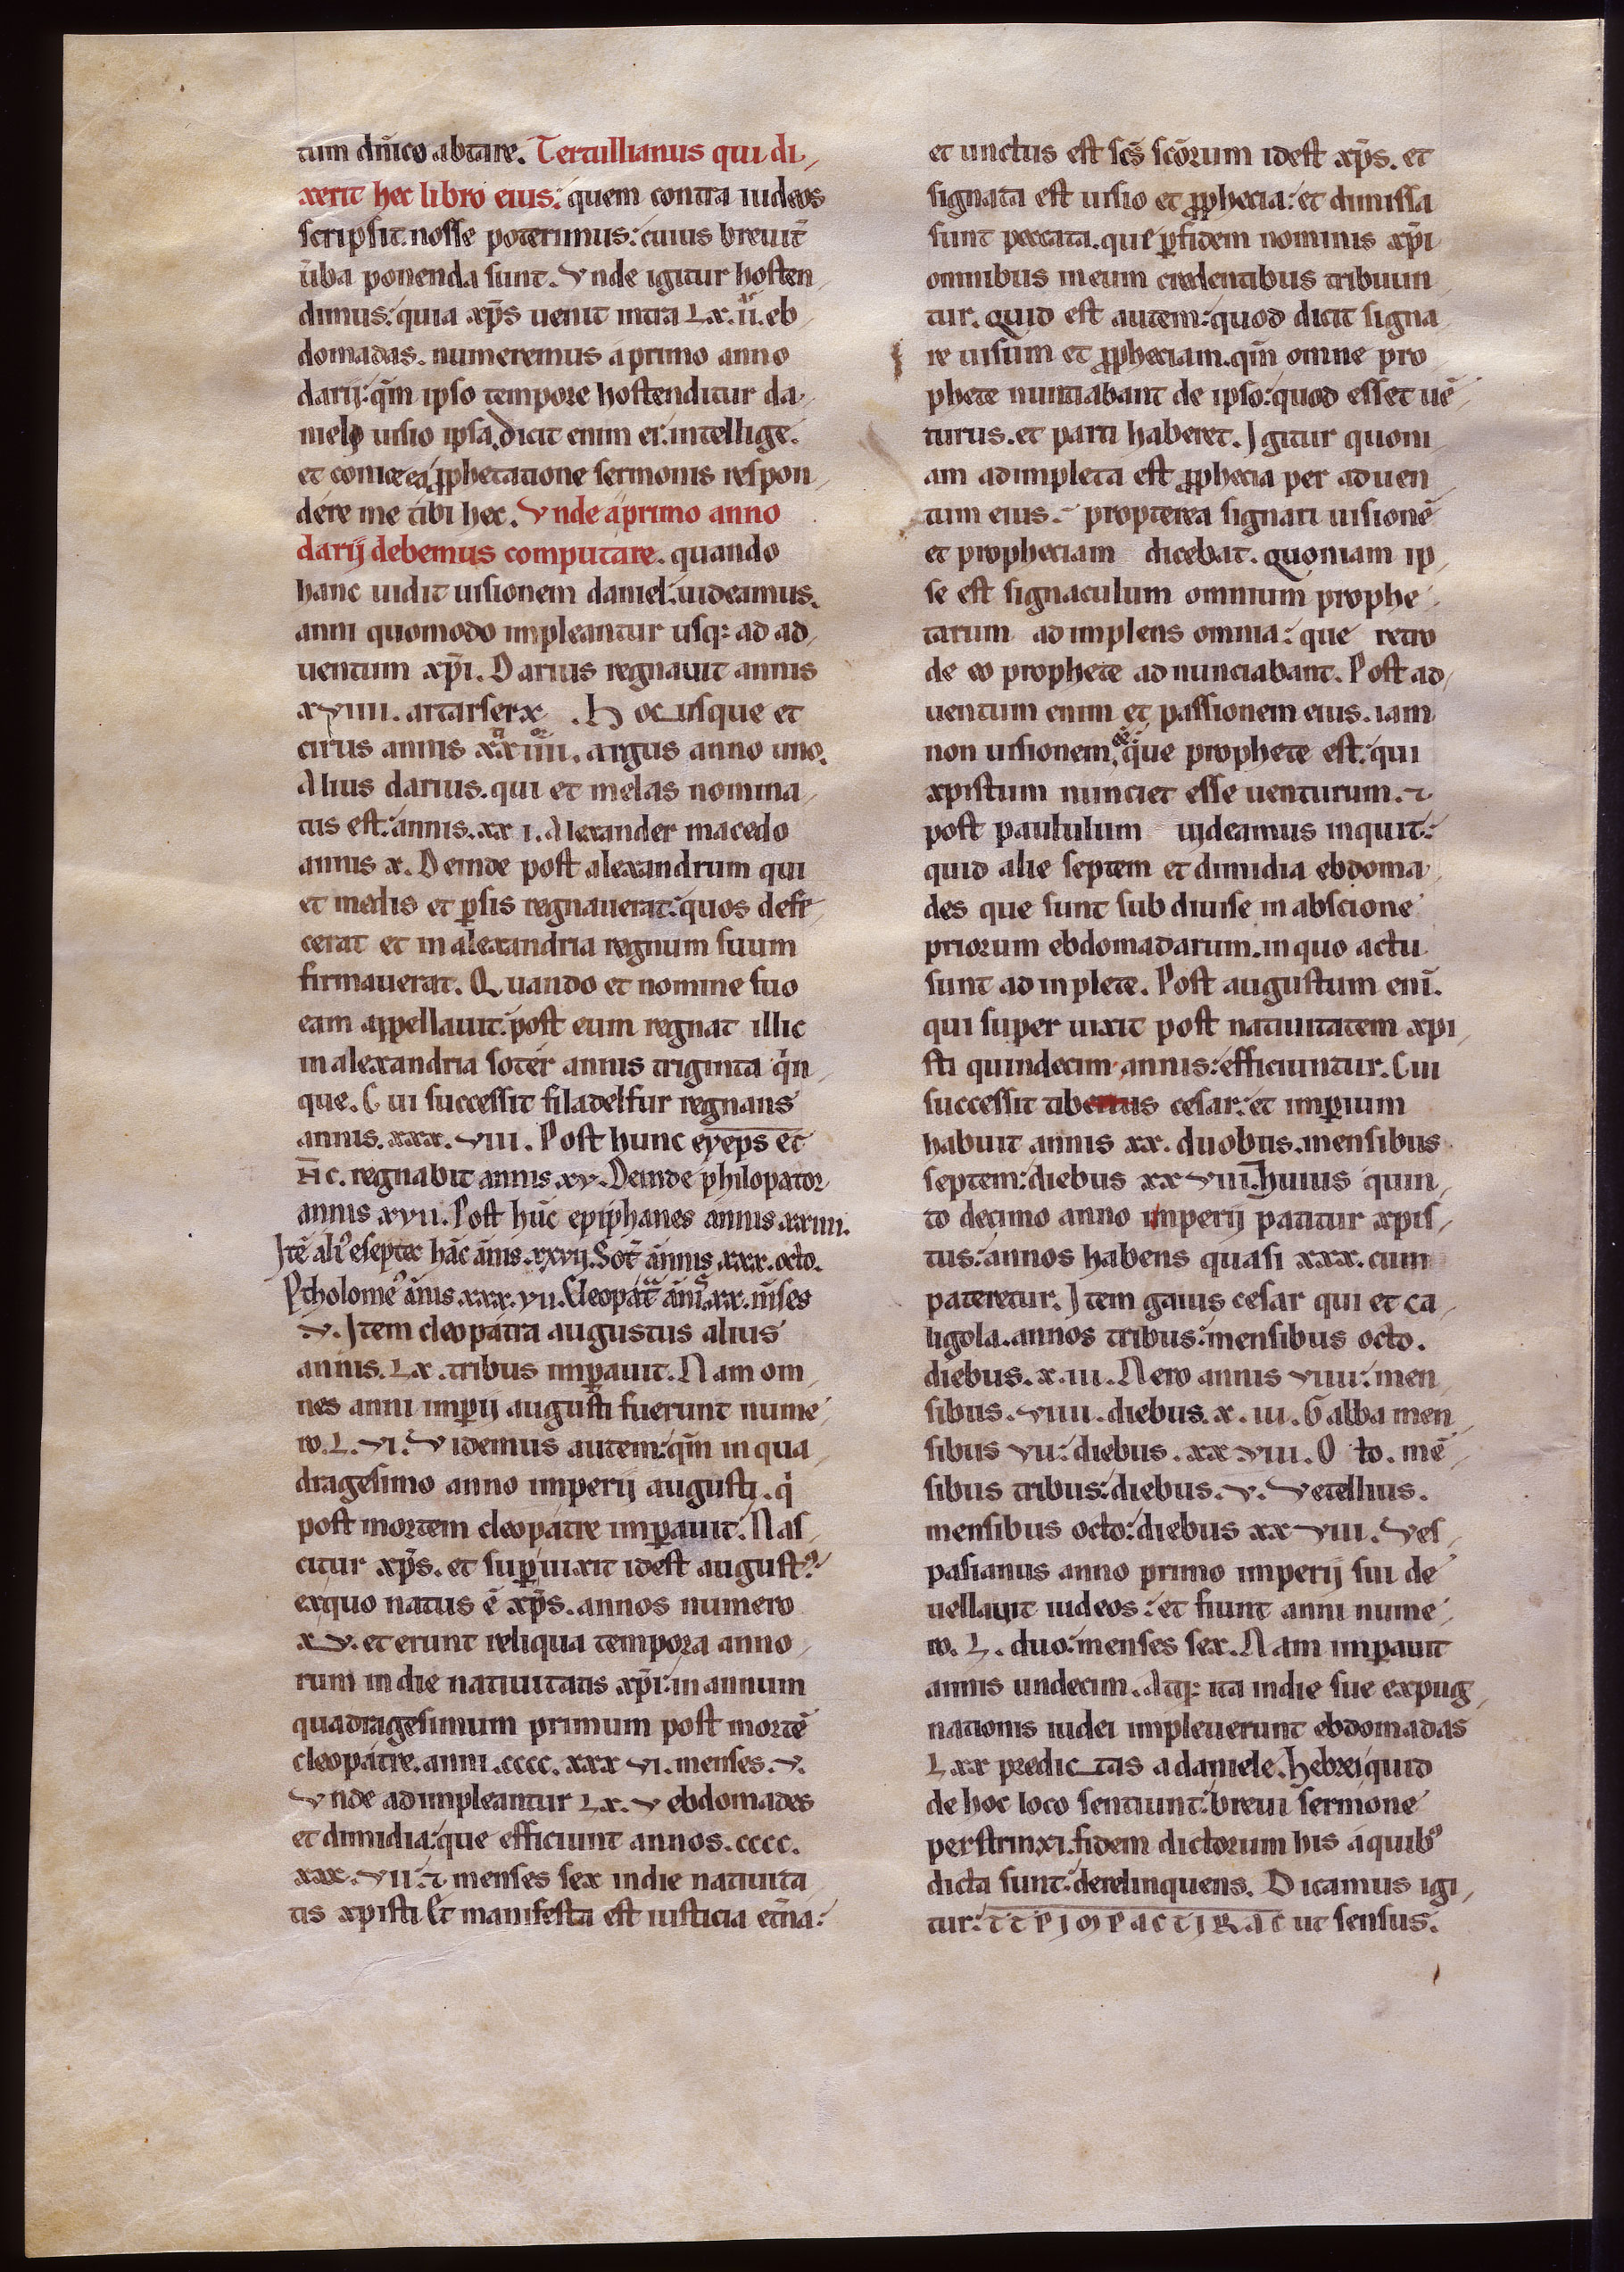 tum dñico abtare. Tertullianus qui di
xerit hec libro eius: quem contra iudeos
scripsit nosse poterimus: cuius breuit̄
ūba ponenda sunt. Vnde igitur hosten
dimus: quia xp̄s uenit intra Lx. ii. eb
domadas. numeremus a primo anno
darij: qm̄ ipso tempore hostenditur da
nielo uisio ipsa. dicit enim ei: intellige.
et conice ea prophetatione sermonis respon
dere me tibi hec. Vnde a primo anno
darij debemus computare. quando
hanc uidit uisionem daniel: uideamus.
anni quomodo impleantur usq; ad ad
uentum xp̄i. Darius regnauit annis
xviiii. artarserx . Hoc usque et
cirus annis xxiiii. argus anno uno.
Alius darius. qui et melas nomina
tus est: annis. xx i. Alexander macedo
annis x. Deinde post alexandrum qui
et medis et ꝑsis regnauerat: quos defi
cerat et in alexandria regnum suum
firmauerat. Quando et nomine suo
eam appellauit: post eum regnat illic
in alexandria soter annis triginta qin
que. Cui successit filadelfur regnans
annis. xxx. viii. Post hunc eyeps et
n̄c. regnabit annis. xv. Deinde philopator
annis xvii. Post huc̄ epiphanes annis. xxiiii.
Itē aliꝰ eseptec hāc ānis. xxvij. Sot̄ ānnis xxx. octo.
Ptholomeꝰ ānis. xxx. vii. Cleopat̄ ānī. xx. m̄ses
v. Item cleopatra augustus alius
annis. Lx. tribus imꝑauit. Nam om
nes anni imꝑij augusti fuerunt nume
ro. L. vi. Videmus autem: qm̄ in qua
dragesimo anno imperij augusti. q
post mortem cleopatre imꝑauit. Nas
citur xp̄s. et suꝑuixit idest augustꝰ
exquo natus ē xp̄s. annos numero
xv. et erunt reliqua tempora anno
rum in die natiuitatis xp̄i: in annum
quadragesimum primum post mortē
cleopatre. anni. cccc. xxx vi. menses. v.
Vnde adimpleantur Lx. v ebdomades
et dimidia: que efficiunt annos. cccc.
xxx. vii: ⁊ menses sex in die natiuita
tis xpisti Et manifesta est iusticia et̄na:
et unctus est sc̄s sc̄orum idest xp̄s. et
signata est uisio et prophecia: et dimissa
sunt peccata. que ꝑ fidem nominis xp̄i
omnibus in eum credentibus tribuun
tur. Quid est autem: quod dicit signa
re uisum et propheciam. qm̄ omne pro
phete nuntiabant de ipso: quod esset uē
turus. et pati haberet. Igitur quoni
am adimpleta est prophecia per aduen
tum eius. propterea signari uisionē
et propheciam dicebat. Quoniam ip
se est signaculum omnium prophe
tarum adimplens omnia: que retro
de eo prophete adnunciabant. Post ad
uentum enim et passionem eius. iam
non uisionem, que prophete est: qui
xpistum nunciet esse uenturum. ⁊
post paululum uideamus inquit:
quid alie septem et dimidia ebdoma
des que sunt sub diuise in abscione
priorum ebdomadarum. in quo actu
sunt ad inplete. Post augustum eni̅.
qui super uixit post natiuitatem xpi
sti quindecim annis: efficiuntur. Cui
successit tiberius cesar: et imꝑium
habuit annis xx. duobus. mensibus
septem: diebus xx viii. huius quin
to decimo anno imperij patitur xpis
tus: annos habens quasi xxx. cum
pateretur. Item gaius cesar qui et ca
ligola. annos tribus: mensibus octo.
diebus. x. iii. Nero annis viiii: men
sibus. viiii. diebus. x. iii. Galba men
sibus vii: diebus. xx. viii. O to. mē
sibus tribus: diebus. v. Vetellius.
mensibus octo: diebus xx viii. Ves
pasianus anno primo imperij sui de
uellauit iudeos: et fiunt anni nume
ro. L. duo: menses sex. Nam imꝑauit
annis undecim. Atq; ita in die sue expug
nationis iudei impleuerunt ebdomadas
Lxx predictas a daniele. hebrei quid
de hoc loco sentiunt: breui sermone
perstrinxi. fidem dictorum his a quibꝰ
dicta sunt: derelinquens. Dicamus igi
tur: ut sensus.